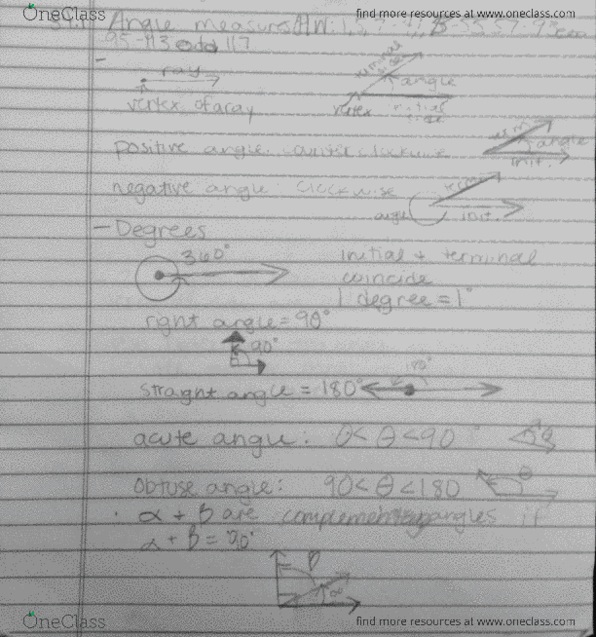 OneClass
find more resources at www.oneclass.com
Angle measures HW:
95-113 odd 117
ray
terminal side
angle
vertex of a ray
vertex
initial side
positive angle: counterclockwise
term.
angle
init.
negative angle: clockwise
term.
angle
init.
- Degrees
360°
initial + terminal
coincide
1 degree = 1°
right angle = 90°
90°
straight angle = 180°
180°
acute angle: 0 < θ < 90°
θ
obtuse angle: 90 < θ < 180
θ
· α + β are complementary angles if
α + β = 90°
β
α
OneClass
find more resources at www.oneclass.com